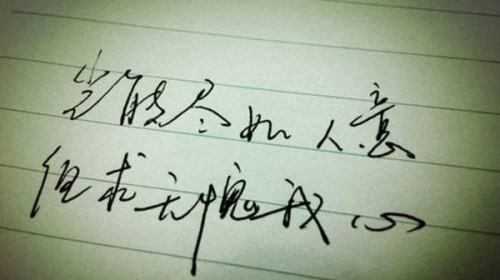 岂能尽如人意
但求无愧我心